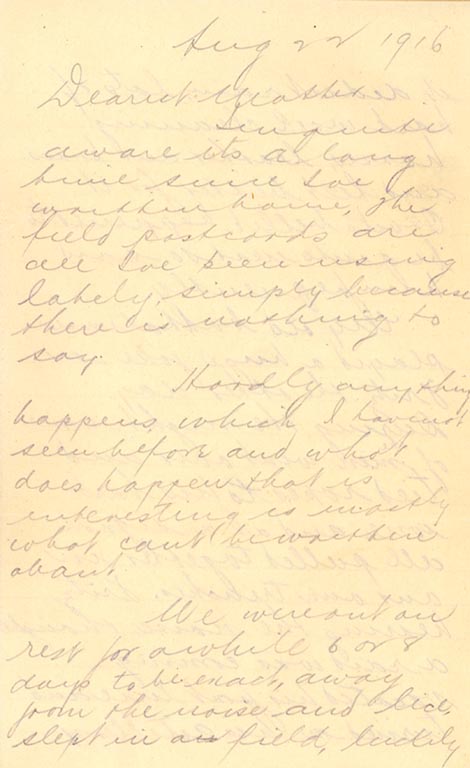 Aug 22 1916
Dearest Mother
I'm quite
aware its a long
time since Ive
written home, the
field postcards are
all Ive been using
lately, simply because
there is nothing to
say.
Hardly anything
happens which I have not
seen before and what
does happen that is
interesting is mostly
what cant be written
about.
We were out on
rest for awhile 6 or 8
days to be exact, away
from the noise and lice,
slept in a field, luckily